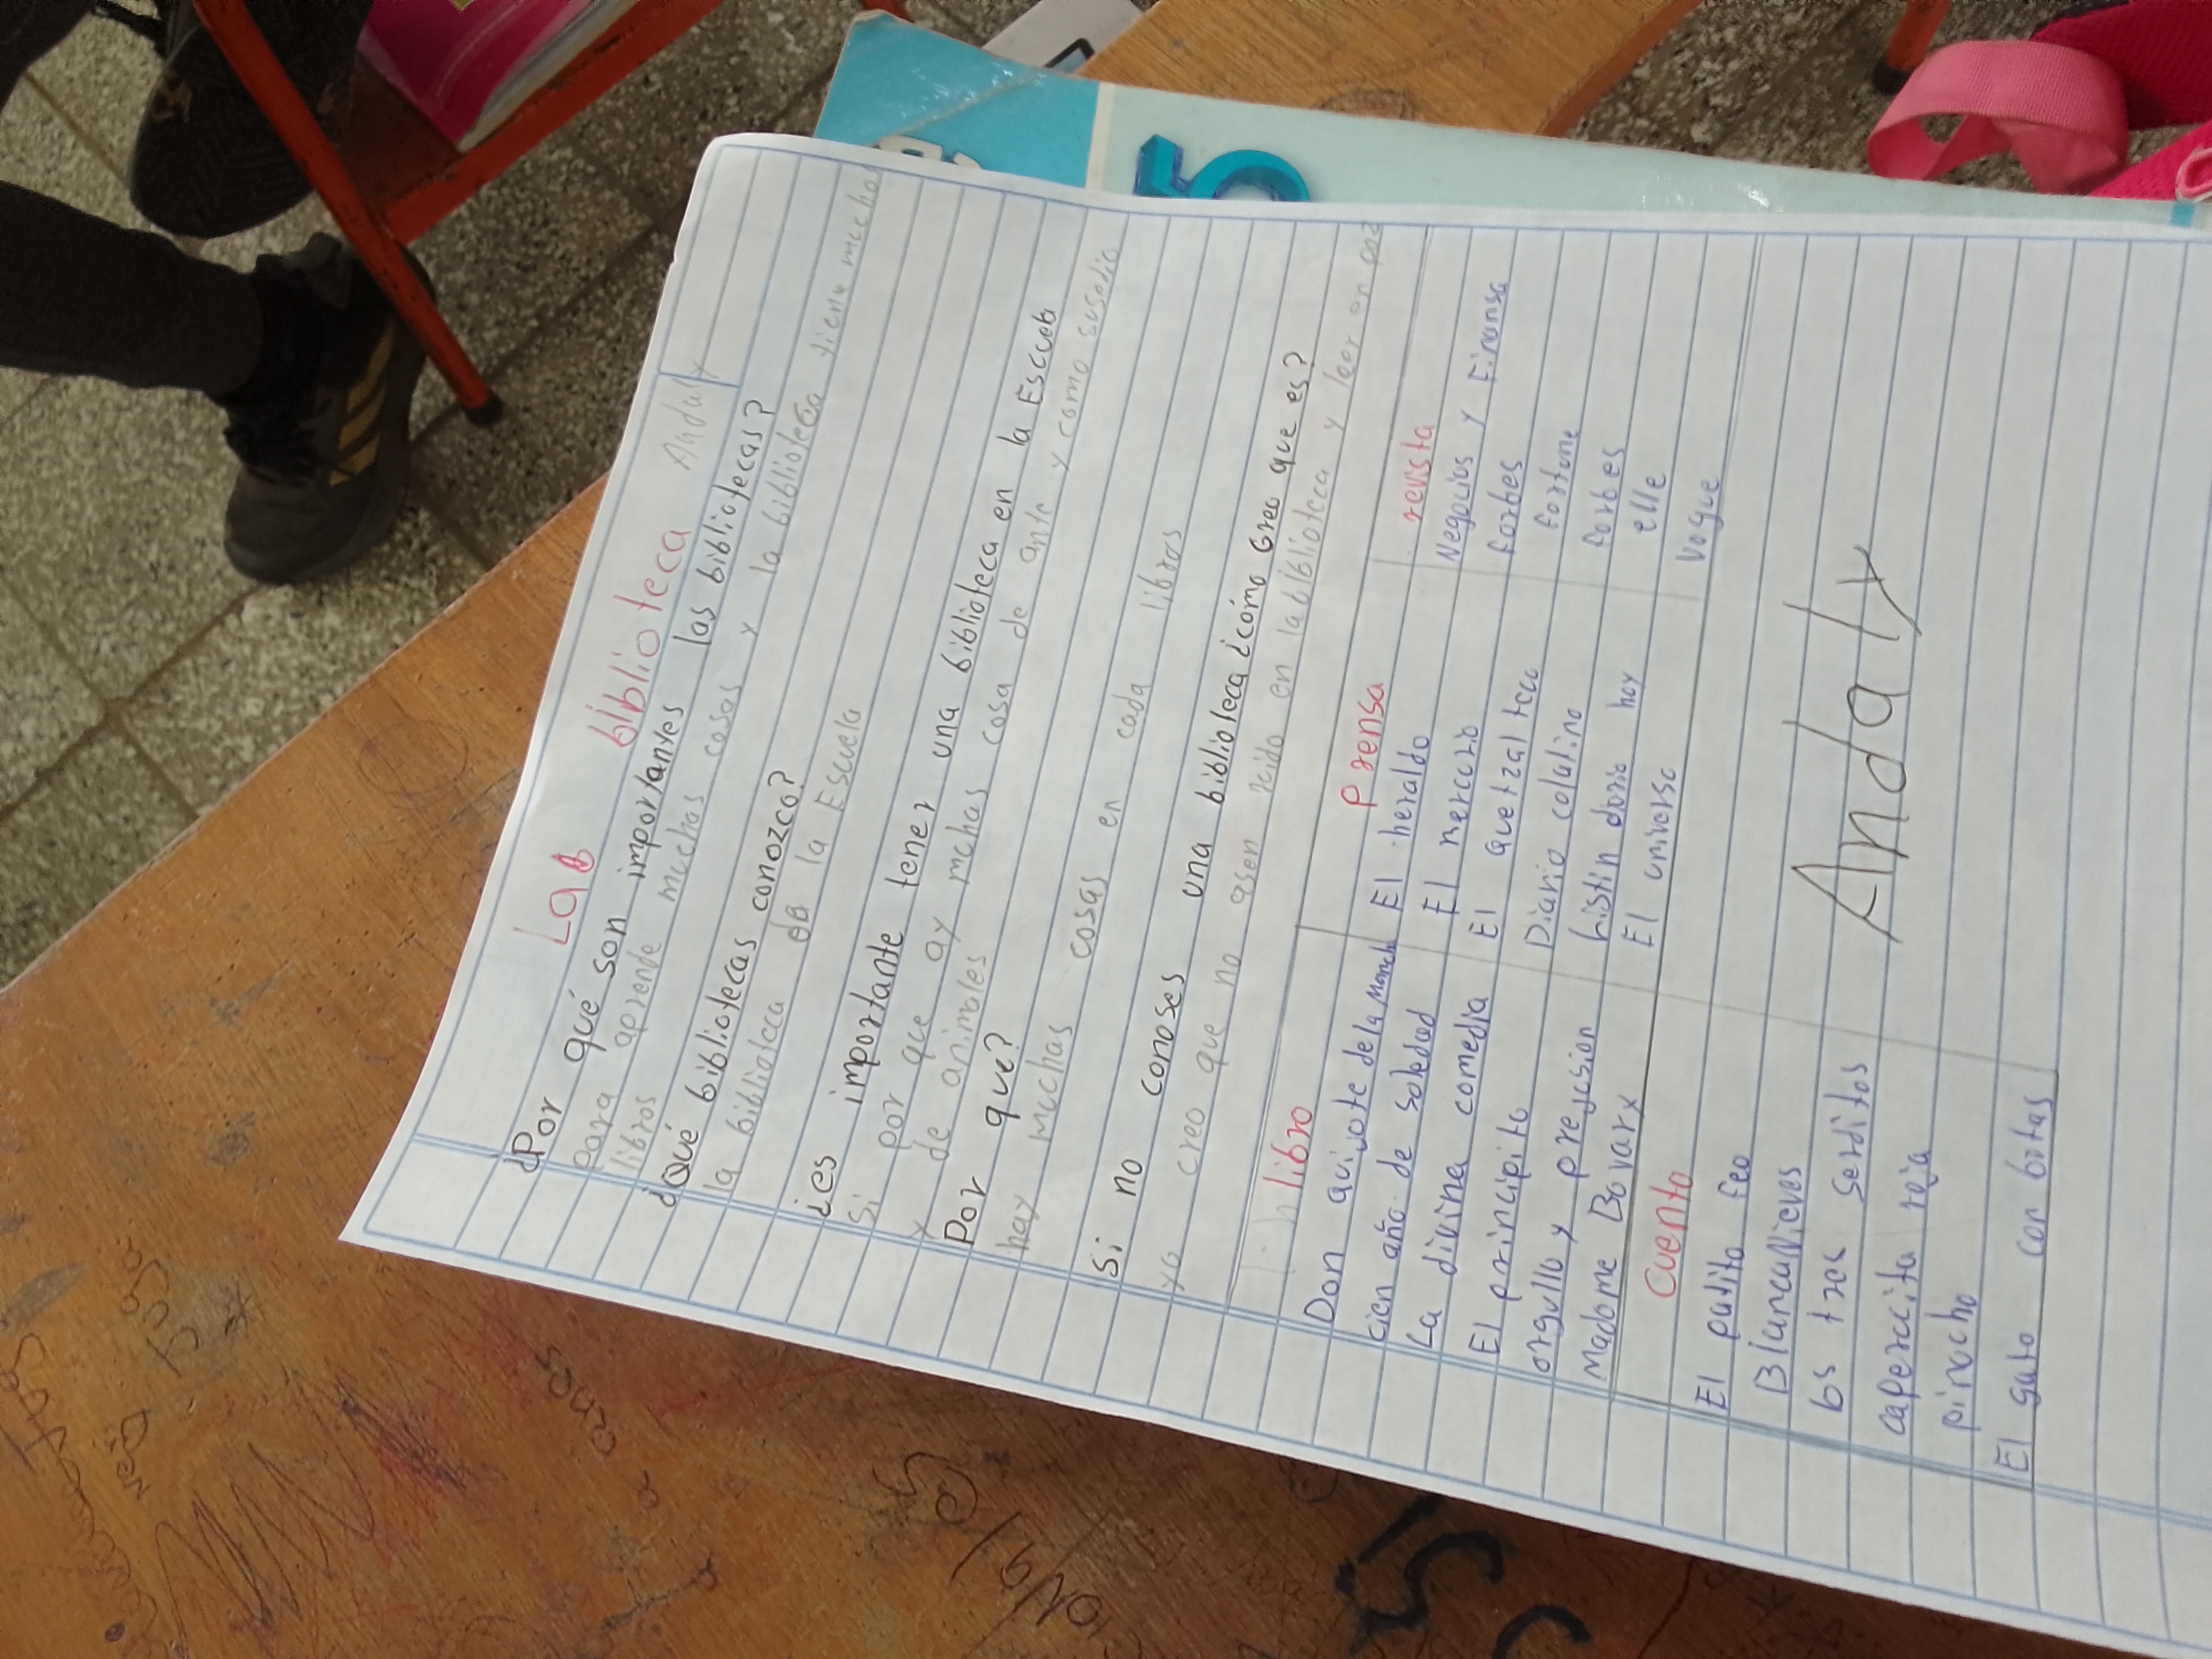 La biblioteca Andaly
¿Por qué son importantes las bibliotecas?
para aprende muchas cosas y la biblioteca tiene muchos
libros
¿Qué bibliotecas conozco?
la biblioteca de la Escuela
¿es importante tener una biblioteca en la Escuela
si por que ay mchas cosa de ante y como susedio
y de animales
Por que?
hay muchas cosas en cada libros
Si no conoses una biblioteca ¿cómo creo que es?
yo creo que no asen ruido en la biblioteca y leer en paz
libro prensa revista
Don quijote de la Manch El heraldo Negocios y Finansa
cien año de soledad El mercurio forbes
La divina comedia El quetzalteco fortune
El principito Diario colatino forbes
orgullo y prejusion Listin dario hoy elle
Madame Bovary El universo Vogue
Cuento
El patito feo
Blancanieves
los tres serditos
caperucita roja
pinocho
El gato con botas
Andaly
5